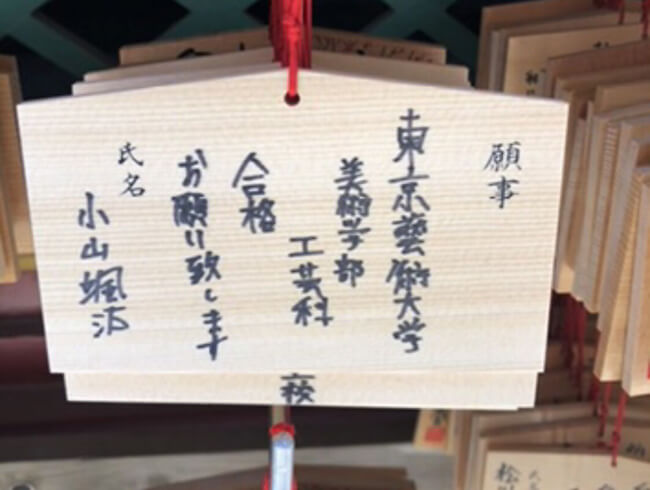 願事
東京藝術大学
美術学部
工芸科
合格
お願い致します
氏名
小山颯
校